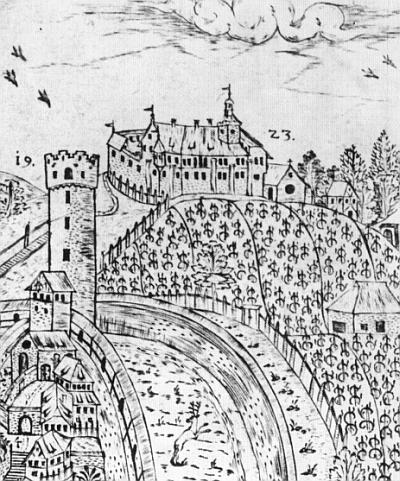 19.
23.